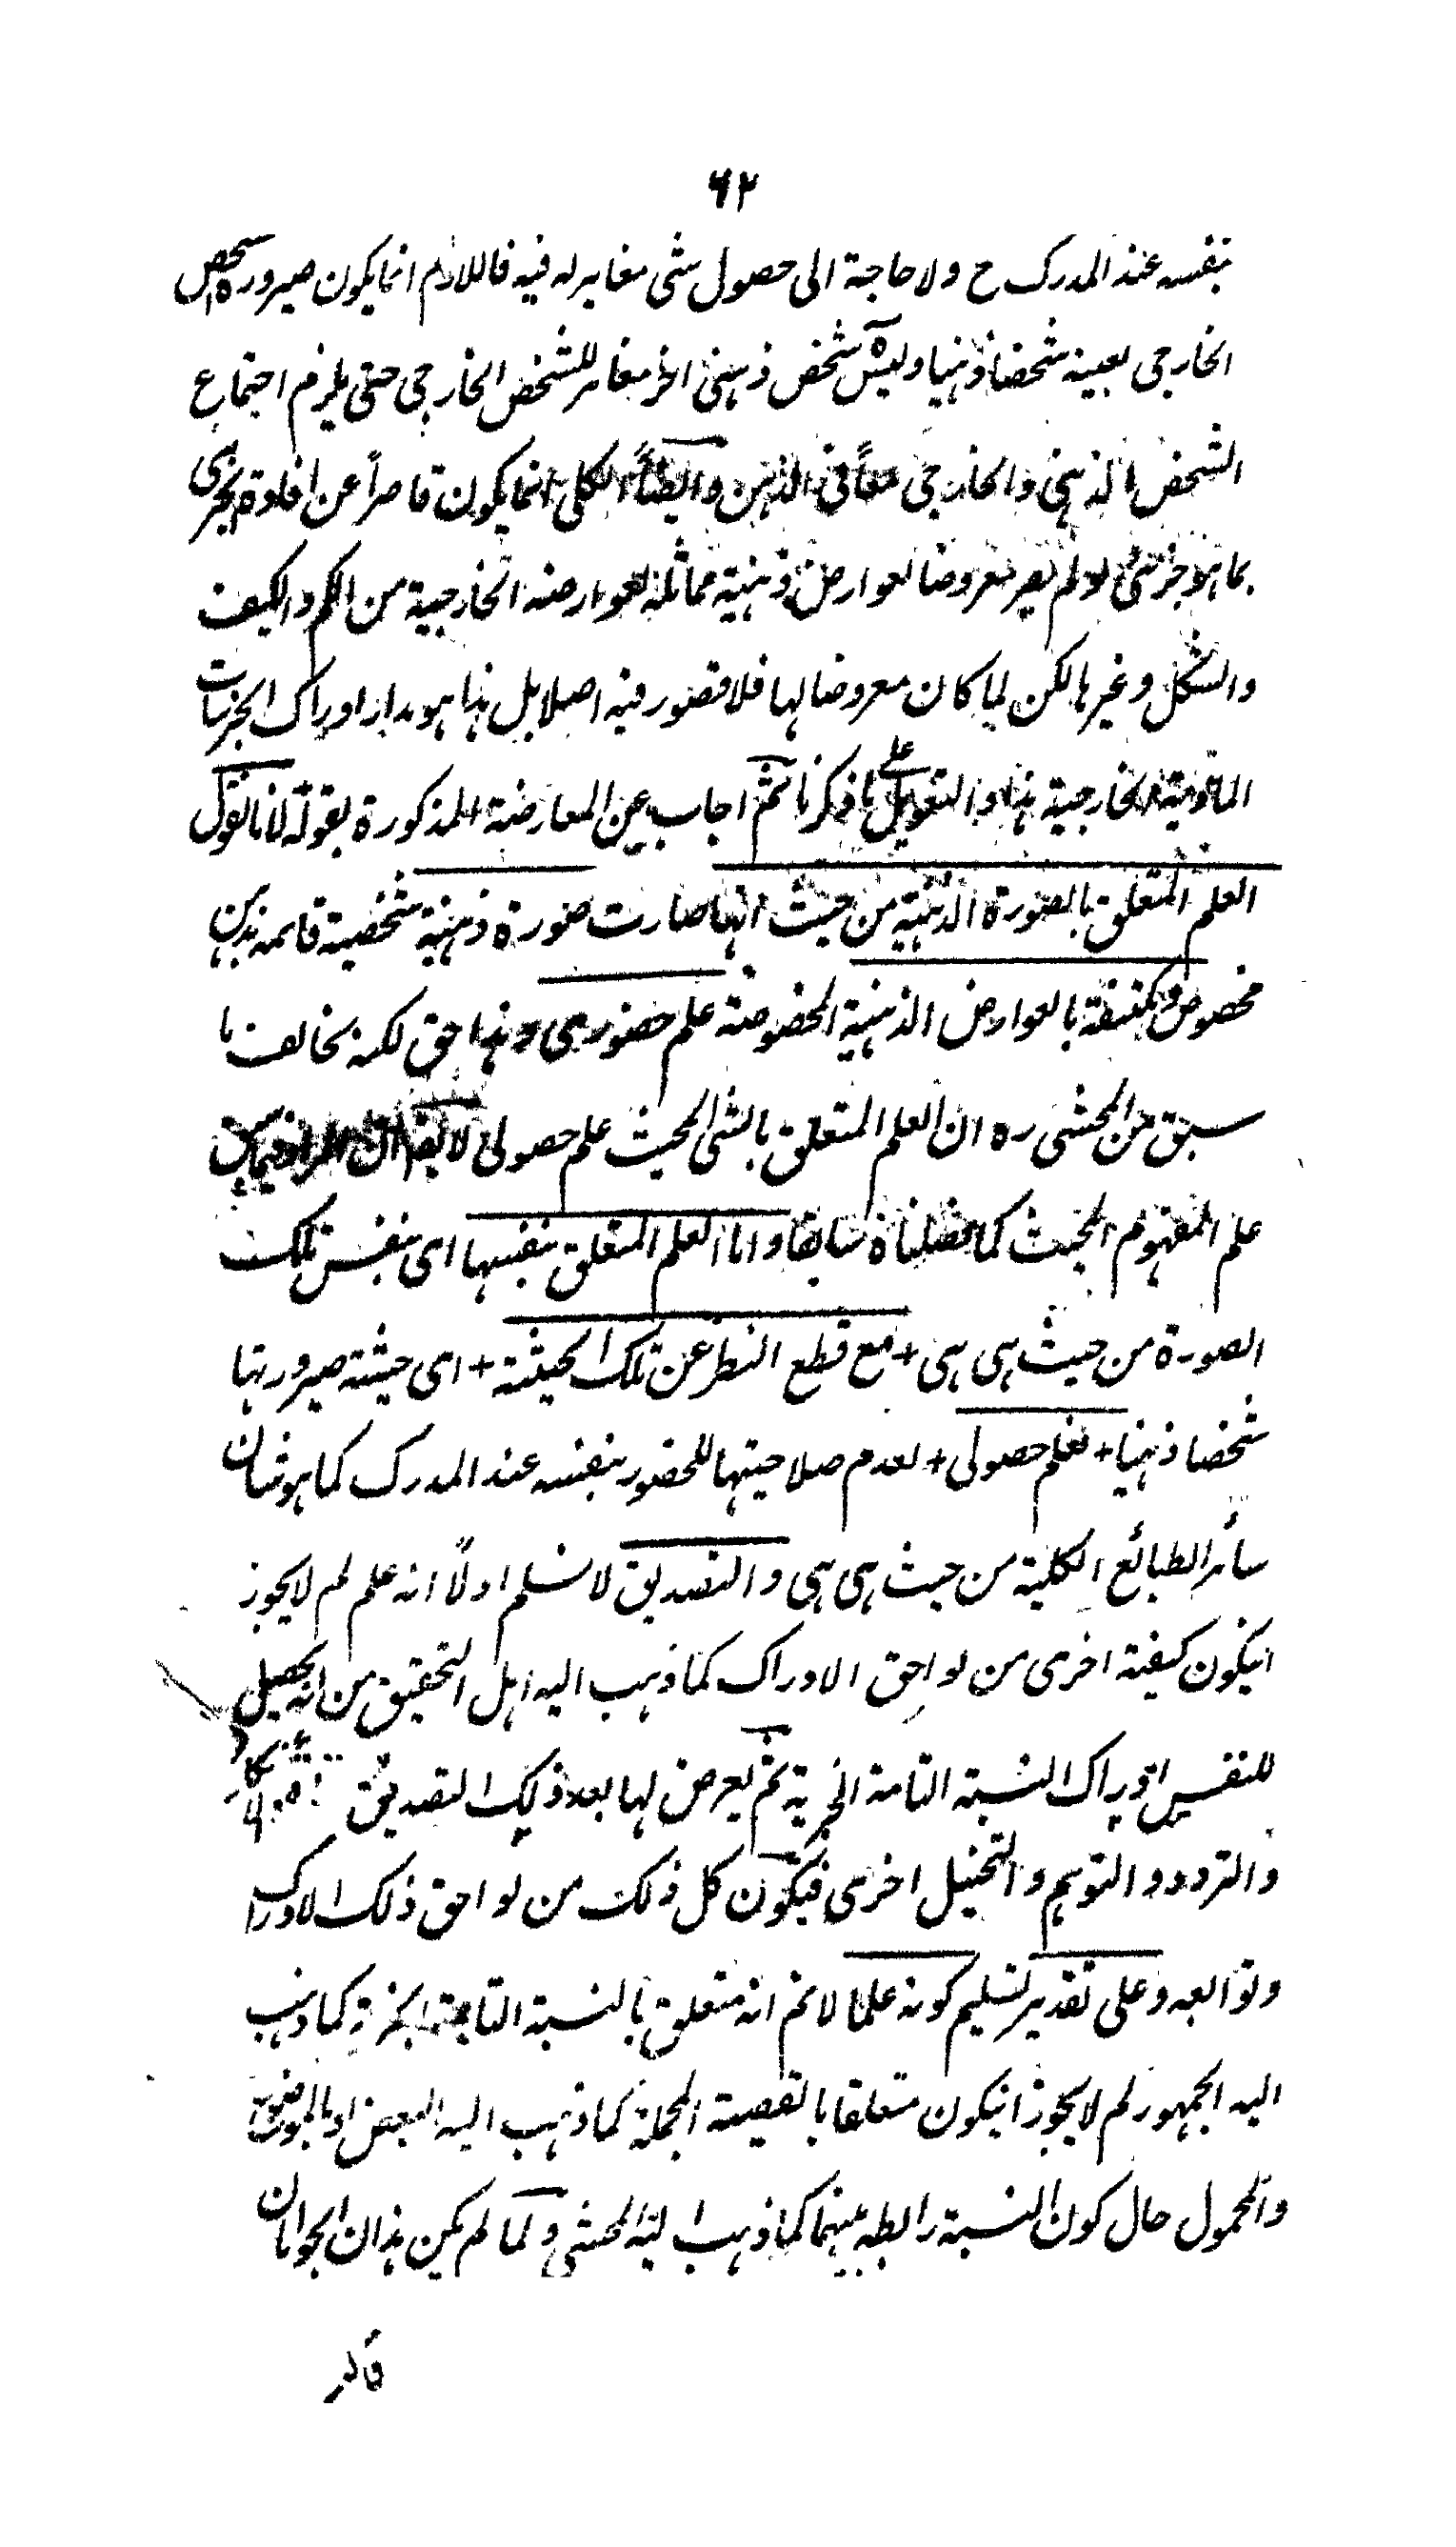 ٦٢
بنفسه عند المدرک ح ولا حاجة الی حصول شی مغایر له فیه فاللازم انما یکون صیرورة الشخص
الخارجی بعینه شخصا ذهنیا ولیس ثمه شخص ذهنی اخر مغایر للشخص الخارجی حتی یلزم اجتماع
الشخص الذهنی والخارجی معاً فی الذهن وایضاً الکلی انما یکون قاصراً عن افادة الجزئی
بما هو جزئی لو لم یصر معروضا لعوارض ذهنیة مماثلة لعوارضه الخارجیة من الکم والکیف
والشکل وغیرها لکن لما کان معروضا لها فلا قصور فیه اصلا بل هذا هو مدار ادراک الجزئیات
المادیة الخارجیة هذا والتعویل علی ما ذکرنا ثم اجاب عن المعارضة المذکورة بقوله لانا نقول
العلم المتعلق بالصورة الذهنیة من حیث انها صارت صورة ذهنیة شخصیة قائمه بذهن
مخصوص ومکتنفة بالعوارض الذهنیة المخصوصة علم حضوری وهذا حق لکنه یخالف ما
سبق من المحشی ره ان العلم المتعلق بالشی المحیث علم حصولی لا یقال ان المراد فیما سبق
علم المفهوم المحیث کما فصلناه سابقا واما العلم المتعلق بنفسها ای بنفس تلک
الصورة من حیث هی هی + مع قطع النظر عن تلک الحیثیة + ای حیثیة صیرورتها
شخصا ذهنیا + فعلم حصولی + لعدم صلاحیتها للحضور بنفسه عند المدرک کما هو شان
سائر الطبائع الکلیة من حیث هی هی والتصدیق لا نسلم اولاً انه علم لم لا یجوز
انیکون کیفیة اخری من لواحق الادراک کما ذهب الیه اهل التحقیق من انه یحصل
للنفس ادراک النسبة التامة الخبریة ثم یعرض لها بعد ذلک التصدیق
والتردد والتوهم والتخییل اخری فیکون کل ذلک من لواحق ذلک الادراک
وتوابعه وعلی تقدیر تسلیم کونه علما لا نم انه متعلق بالنسبة التامة الخبریة کما ذهب
الیه الجمهور لم لا یجوز انیکون متعلقا بالقضیة المجملة کما ذهب الیه البعض او بالموضوع
والمحمول حال کون النسبة رابطه بینهما کما ذهب الیه المحشی ولما لم یکن هذان الجوابان